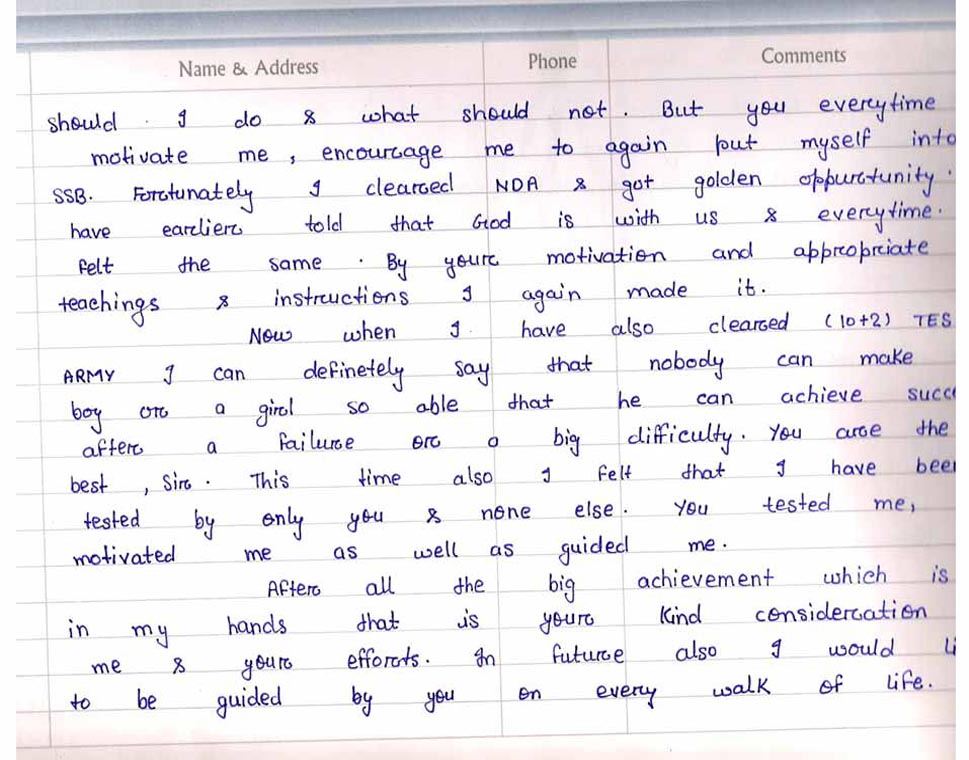 Name & Address Phone Comments
should. I do & what should not. But you everytime
motivate me, encourage me to again put myself into
SSB. Fortunately I cleared NDA & got golden oppurtunity.
have earlier told that God is with us & everytime.
felt the same. By your motivation and appropriate
teachings & instructions I again made it.
Now when I. have also cleared (10+2) TES
ARMY I can definetely say that nobody can make
boy or a girl so able that he can achieve succe
after a failure or a big difficulty. You are the
best, Sir. This time also I felt that I have been
tested by only you & none else. You tested me,
motivated me as well as guided me.
After all the big achievement which is
in my hands that is your kind consideration
me & your efforts. In future also I would li
to be guided by you on every walk of life.